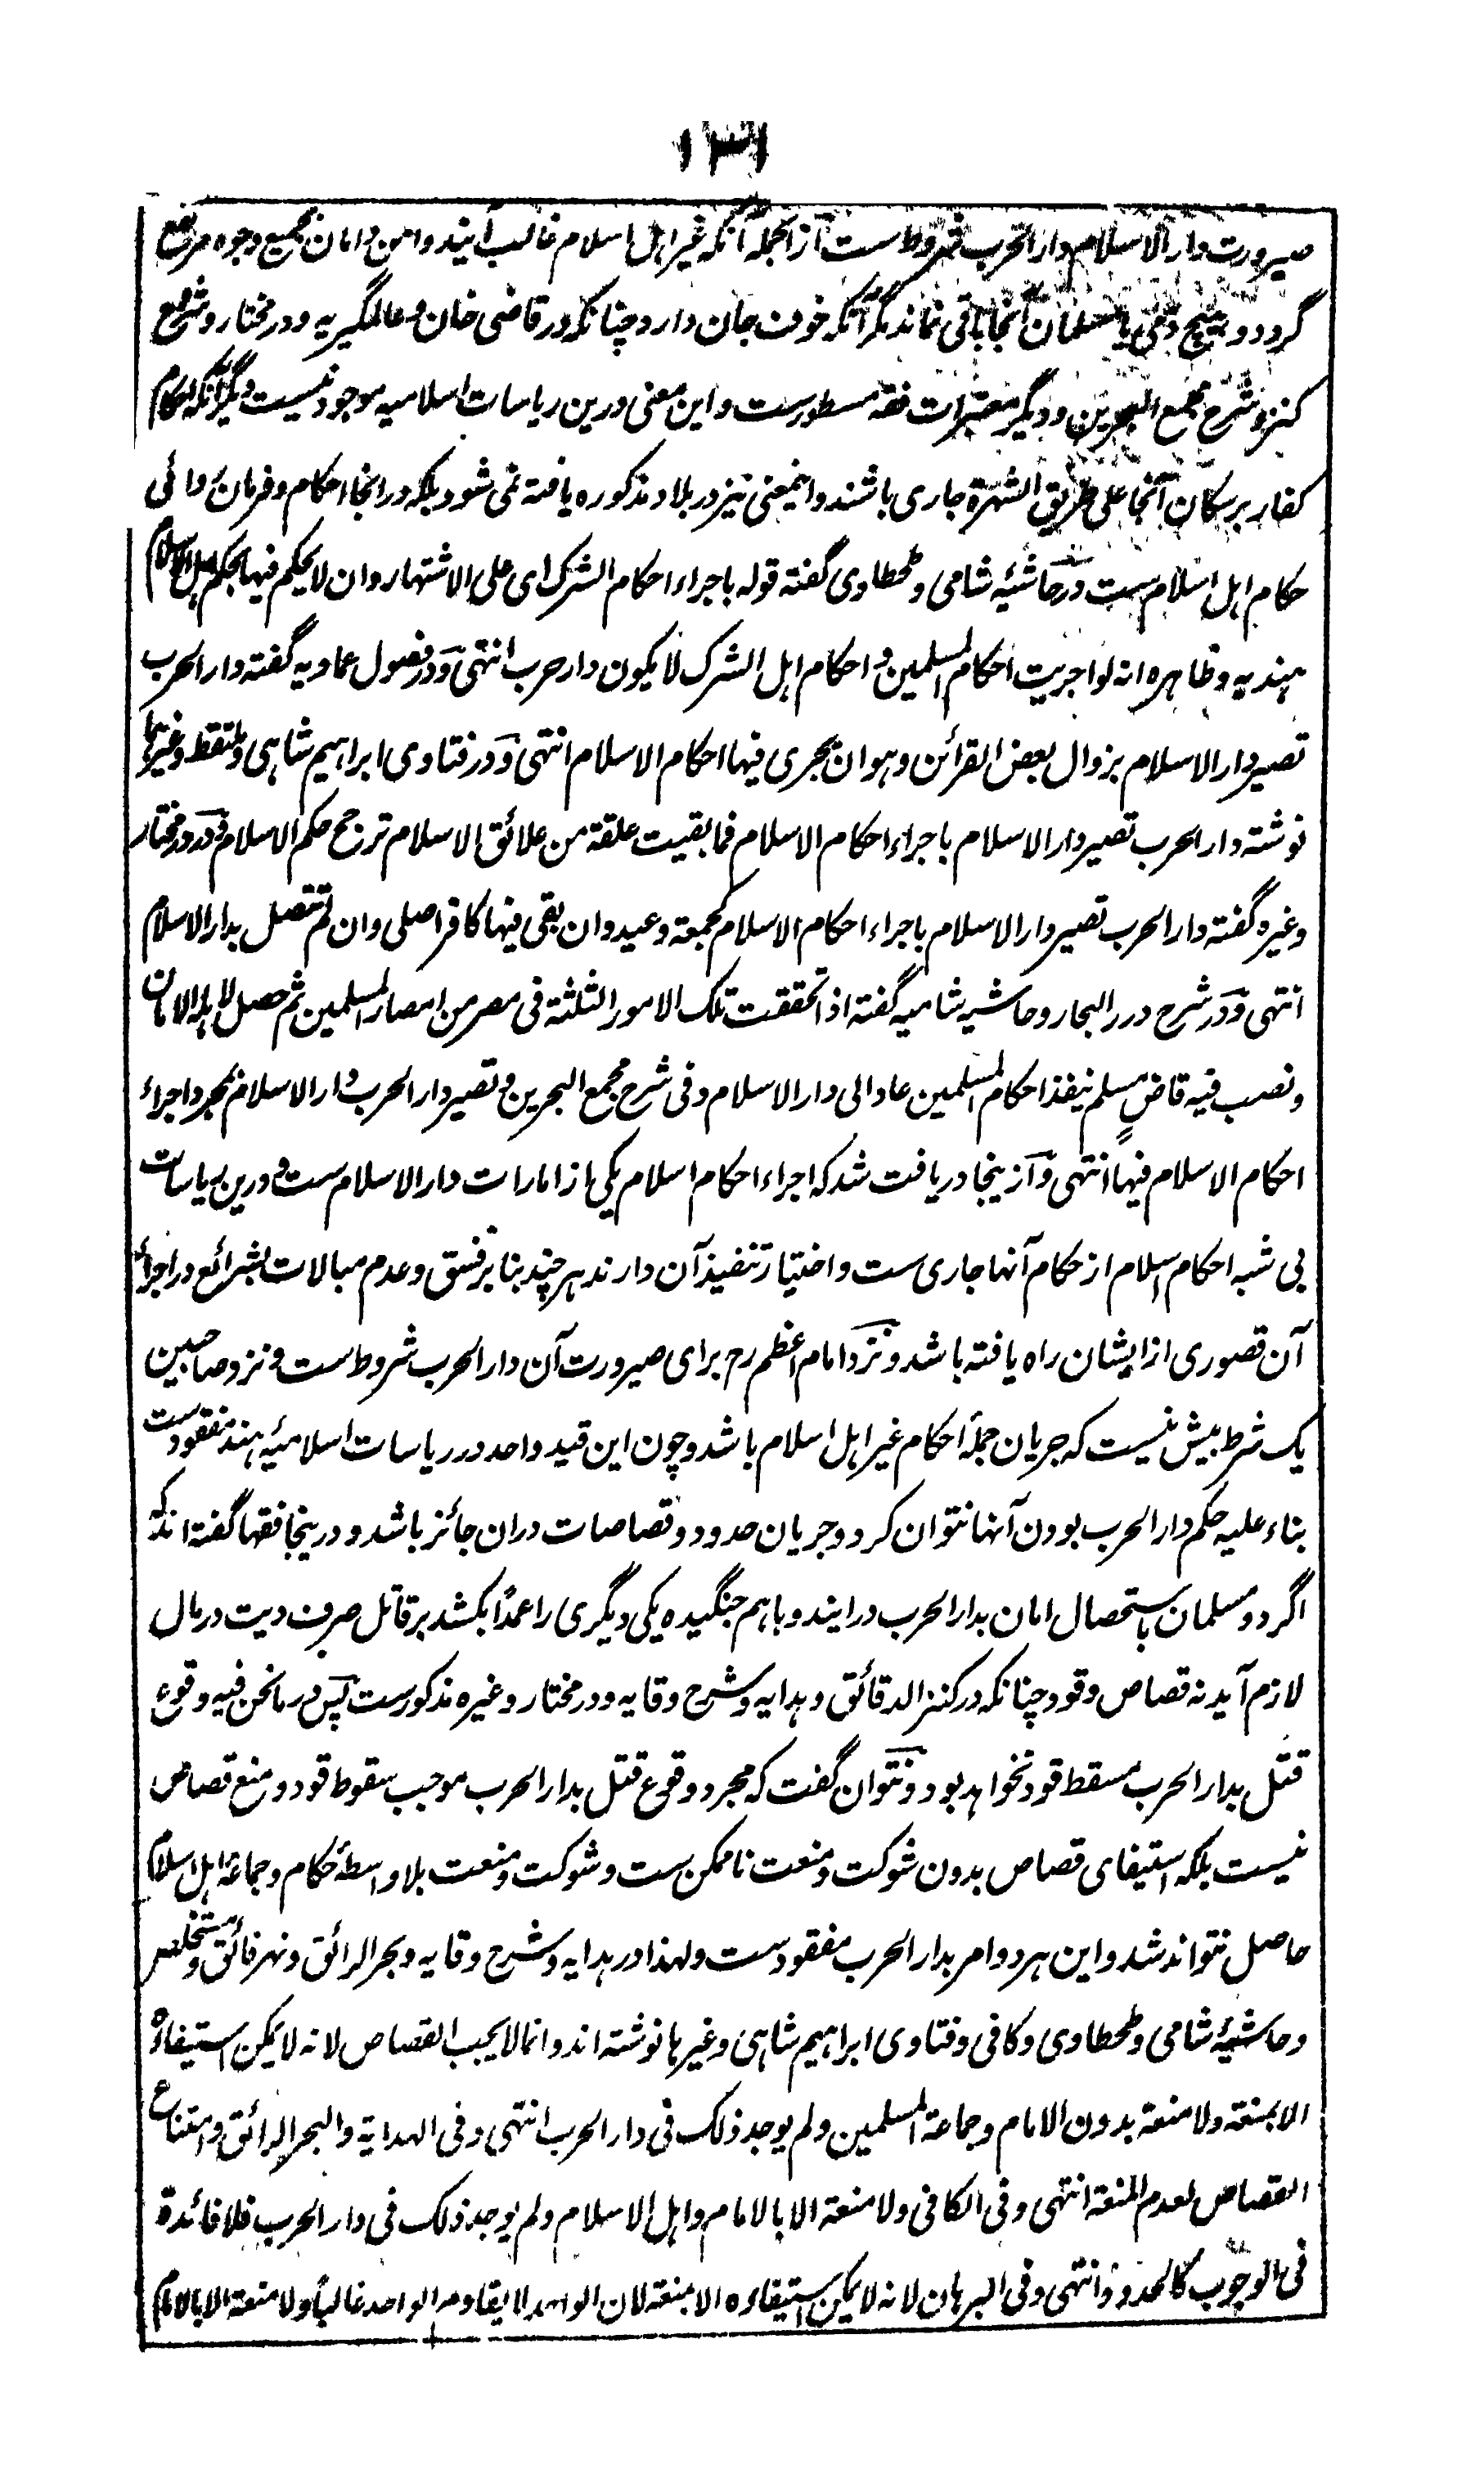 ۱۳۱
صیرورت دار الاسلام دار الحرب شروط ست ازانجمله آنکه غیر اہل اسلام غالب آیند و امن و امان بجمیع وجوه مرتفع
گردد و ہیچ ذمی یا مسلمان آنجا باقی نماند مگر آنکه خوف جان دارد چنانکه در قاضی خان و عالمگیریه و در مختار و شرح
کنز و شرح مجمع البحرین و دیگر معتبرات فقه مسطورست و این معنی درین ریاسات اسلامیه موجود نیست و دیگر آنکه احکام
کفار بر سکان آنجا علی طریق الشهرة جاری باشند و اینمعنی نیز در بلاد مذکوره یافته نمی شود بلکه در انجا احکام و فرمان روائی
حکام اہل اسلام ست و در حاشیۂ شامی و طحطاوی گفته قوله باجراء احکام الشرک ای علی الاشتهار و ان لا یحکم فیها بحکم اہل الاسلام
ہندیه و ظاہره انه لو اجریت احکام المسلمین و احکام اہل الشرک لا یکون دار حرب انتهی و در فصول عمادیه گفته دار الحرب
تصیر دار الاسلام بزوال بعض القرائن و ہو ان یجری فیها احکام الاسلام انتهی و در فتاوی ابراہیم شاہی و ملتقط و غیرہما
نوشته دار الحرب تصیر دار الاسلام باجراء احکام الاسلام فما بقیت علقة من علائق الاسلام ترجح حکم الاسلام و در در مختار
وغیره گفته دار الحرب تصیر دار الاسلام باجراء احکام الاسلام کجمعة و عید و ان بقی فیها کافر اصلی و ان لم تتصل بدار الاسلام
انتهی و در شرح درر البحار و حاشیه شامیه گفته اذا تحققت تلک الامور الثلثة فی مصر من امصار المسلمین ثم حصل لاہله الامان
و نصب فیه قاضٍ مسلم ینفذ احکام المسلمین عاد الی دار الاسلام و فی شرح مجمع البحرین و تصیر دار الحرب دار الاسلام بمجرد اجراء
احکام الاسلام فیها انتهی و از ینجا دریافت شد که اجراء احکام اسلام یکی از امارات دار الاسلام ست و درین ریاسات
بی شبه احکام اسلام از حکام آنها جاری ست و اختیار تنفیذ آن دارند ہر چند بنا بر فسق و عدم مبالات بشرائع در اجراء
آن قصوری از ایشان راه یافته باشد و نزد امام اعظم رح برای صیرورت آن دار الحرب شروط ست و نزد صاحبین
یک شرط بیش نیست که جریان جملۂ احکام غیر اہل اسلام باشد و چون این قید واحد در ریاسات اسلامیۂ ہند مفقودست
بناء علیه حکم دار الحرب بودن آنها نتوان کرد و جریان حدود و قصاصات دران جائز باشد و درینجا فقها گفته اند که
اگر دو مسلمان باستحصال امان بدار الحرب در ایند و باہم جنگیده یکی دیگری را عمداً بکشد بر قاتل صرف دیت در مال
لازم آید نه قصاص و قود چنانکه در کنز الدقائق و ہدایه و شرح وقایه و در مختار وغیره مذکورست پس در ما نحن فیه وقوع
قتل بدار الحرب مسقط قود نخواہد بود و نتوان گفت که مجرد وقوع قتل بدار الحرب موجب سقوط قود و منع قصاص
نیست بلکه استیفای قصاص بدون شوکت و منعت ناممکن ست و شوکت و منعت بلا واسطۂ حکام و جماعۂ اہل اسلام
حاصل نتواند شد و این ہر دو امر بدار الحرب مفقودست و لهذا در ہدایه و شرح وقایه و بحر الرائق و نهر فائق و مستخلص
و حاشیۂ شامی و طحطاوی و کافی و فتاوی ابراہیم شاہی و غیرہا نوشته اند و انما لا یجب القصاص لانه لا یمکن استیفاؤه
الا بمنعة و لا منعة بدون الامام و جماعة المسلمین و لم یوجد ذلک فی دار الحرب انتهی و فی الهدایة و البحر الرائق و امتناع
القصاص لعدم المنعة انتهی و فی الکافی و لا منعة الا بالامام و اہل الاسلام و لم یوجد ذلک فی دار الحرب فلا فائدة
فی الوجوب کالحدود انتهی و فی البرہان لانه لا یمکن استیفاءه الا بمنعة لان الواحد لا یقاوم الواحد غالباً و لا منعة الا بالامام